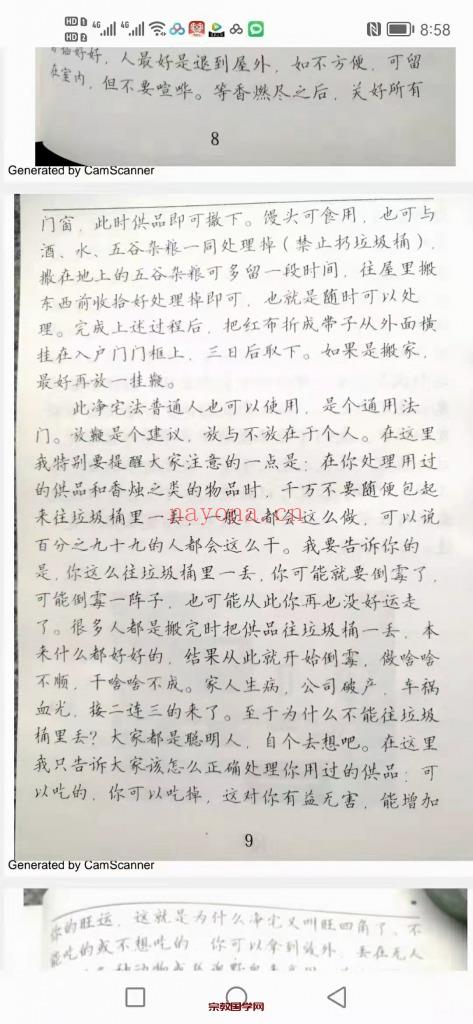 HD 1 4G 4G 8:58
HD 2
好好，人最好是退到屋外，如不方便，可留
在室内，但不要喧哗。等香燃尽之后，关好所有
8
Generated by CamScanner
门窗，此时供品即可撤下。馒头可食用，也可与
酒、水、五谷杂粮一同处理掉（禁止扔垃圾桶），
撒在地上的五谷杂粮可多留一段时间，往屋里搬
东西前收拾好处理掉即可，也就是随时可以处
理。完成上述过程后，把红布折成带子从外面横
挂在入户门门框上，三日后取下。如果是搬家，
最好再放一挂鞭。
此净宅法普通人也可以使用，是个通用法
门。放鞭是个建议，放与不放在于个人。在这里
我特别要提醒大家注意的一点是：在你处理用过
的供品和香烛之类的物品时，千万不要随便包起
来往垃圾桶里一丢，一般人都会这么做，可以说
百分之九十九的人都会这么干。我要告诉你的
是，你这么往垃圾桶里一丢，你可能就要倒霉了，
可能倒霉一阵子，也可能从此你再也没好运走
了。很多人都是搬完时把供品往垃圾桶一丢，本
来什么都好好的，结果从此就开始倒霉，做啥啥
不顺，干啥啥不成。家人生病，公司破产，车祸
血光，接二连三的来了。至于为什么不能往垃圾
桶里丢？大家都是聪明人，自个去想吧。在这里
我只告诉大家该怎么正确处理你用过的供品：可
以吃的，你可以吃掉，这对你有益无害，能增加
nayona.cn
9
Generated by CamScanner
你的旺运，这就是为什么净宅又叫旺四角了。不
能吃的或不想吃的，你可以拿到效外，丢在无人
宗教国学网